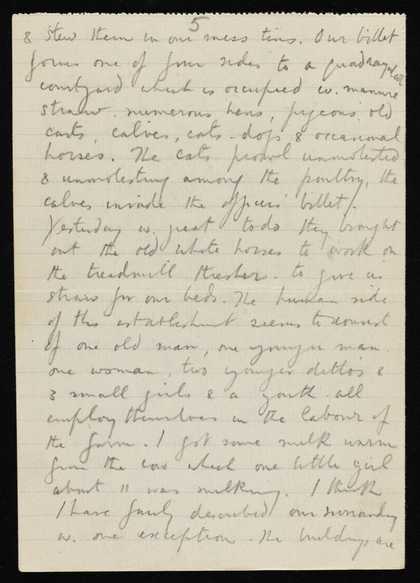 5
& stew them in our mess tins. Our billet
forms one of four sides to a quadrangular
courtyard which is occupied w. manure
straw numerous hens, pigeons, old
carts, calves, cats - dogs & occasional
horses. The cats prowl unmolested
& unmolesting among the poultry, the
calves invade the officers billet.
Yesterday w. great todo they brought
out the old white horses to work on
the treadmill thresher - to give us
straw for our beds. The human side
of this establishment seems to consist
of one old man, one younger man
one woman, two younger dittos &
3 small girls & a youth - all
employ themselves in the labour of
the farm. I got some milk warm
from the cow which one little girl
about 11 was milking. I think
I have fairly described our surrounding
w. one exception. The buildings are